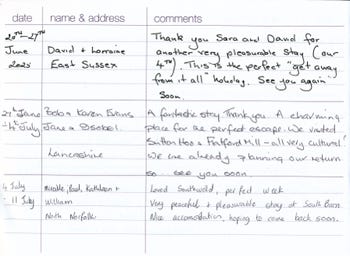 date name & address comments
20TH-27TH Thank you Sara and David for
June David + Lorraine another very pleasurable stay (our
2025 East Sussex 4TH). This is the perfect "get away
from it all" holiday. See you again
Soon.
27th June Bob & Karen Evans A fantastic stay. Thank you. A charming
- 4th July Jane & Isobel. place for the perfect escape. We visited
Sutton Hoo & Flatford Mill - all very cultural!
Lancashire We are already planning our return
so... see you soon
4 July Kathleen + Loved Southwold, perfect week
- 11 July William Very peaceful & pleasurable stay at South Barn
North Norfolk Nice accomodation, hoping to come back soon.